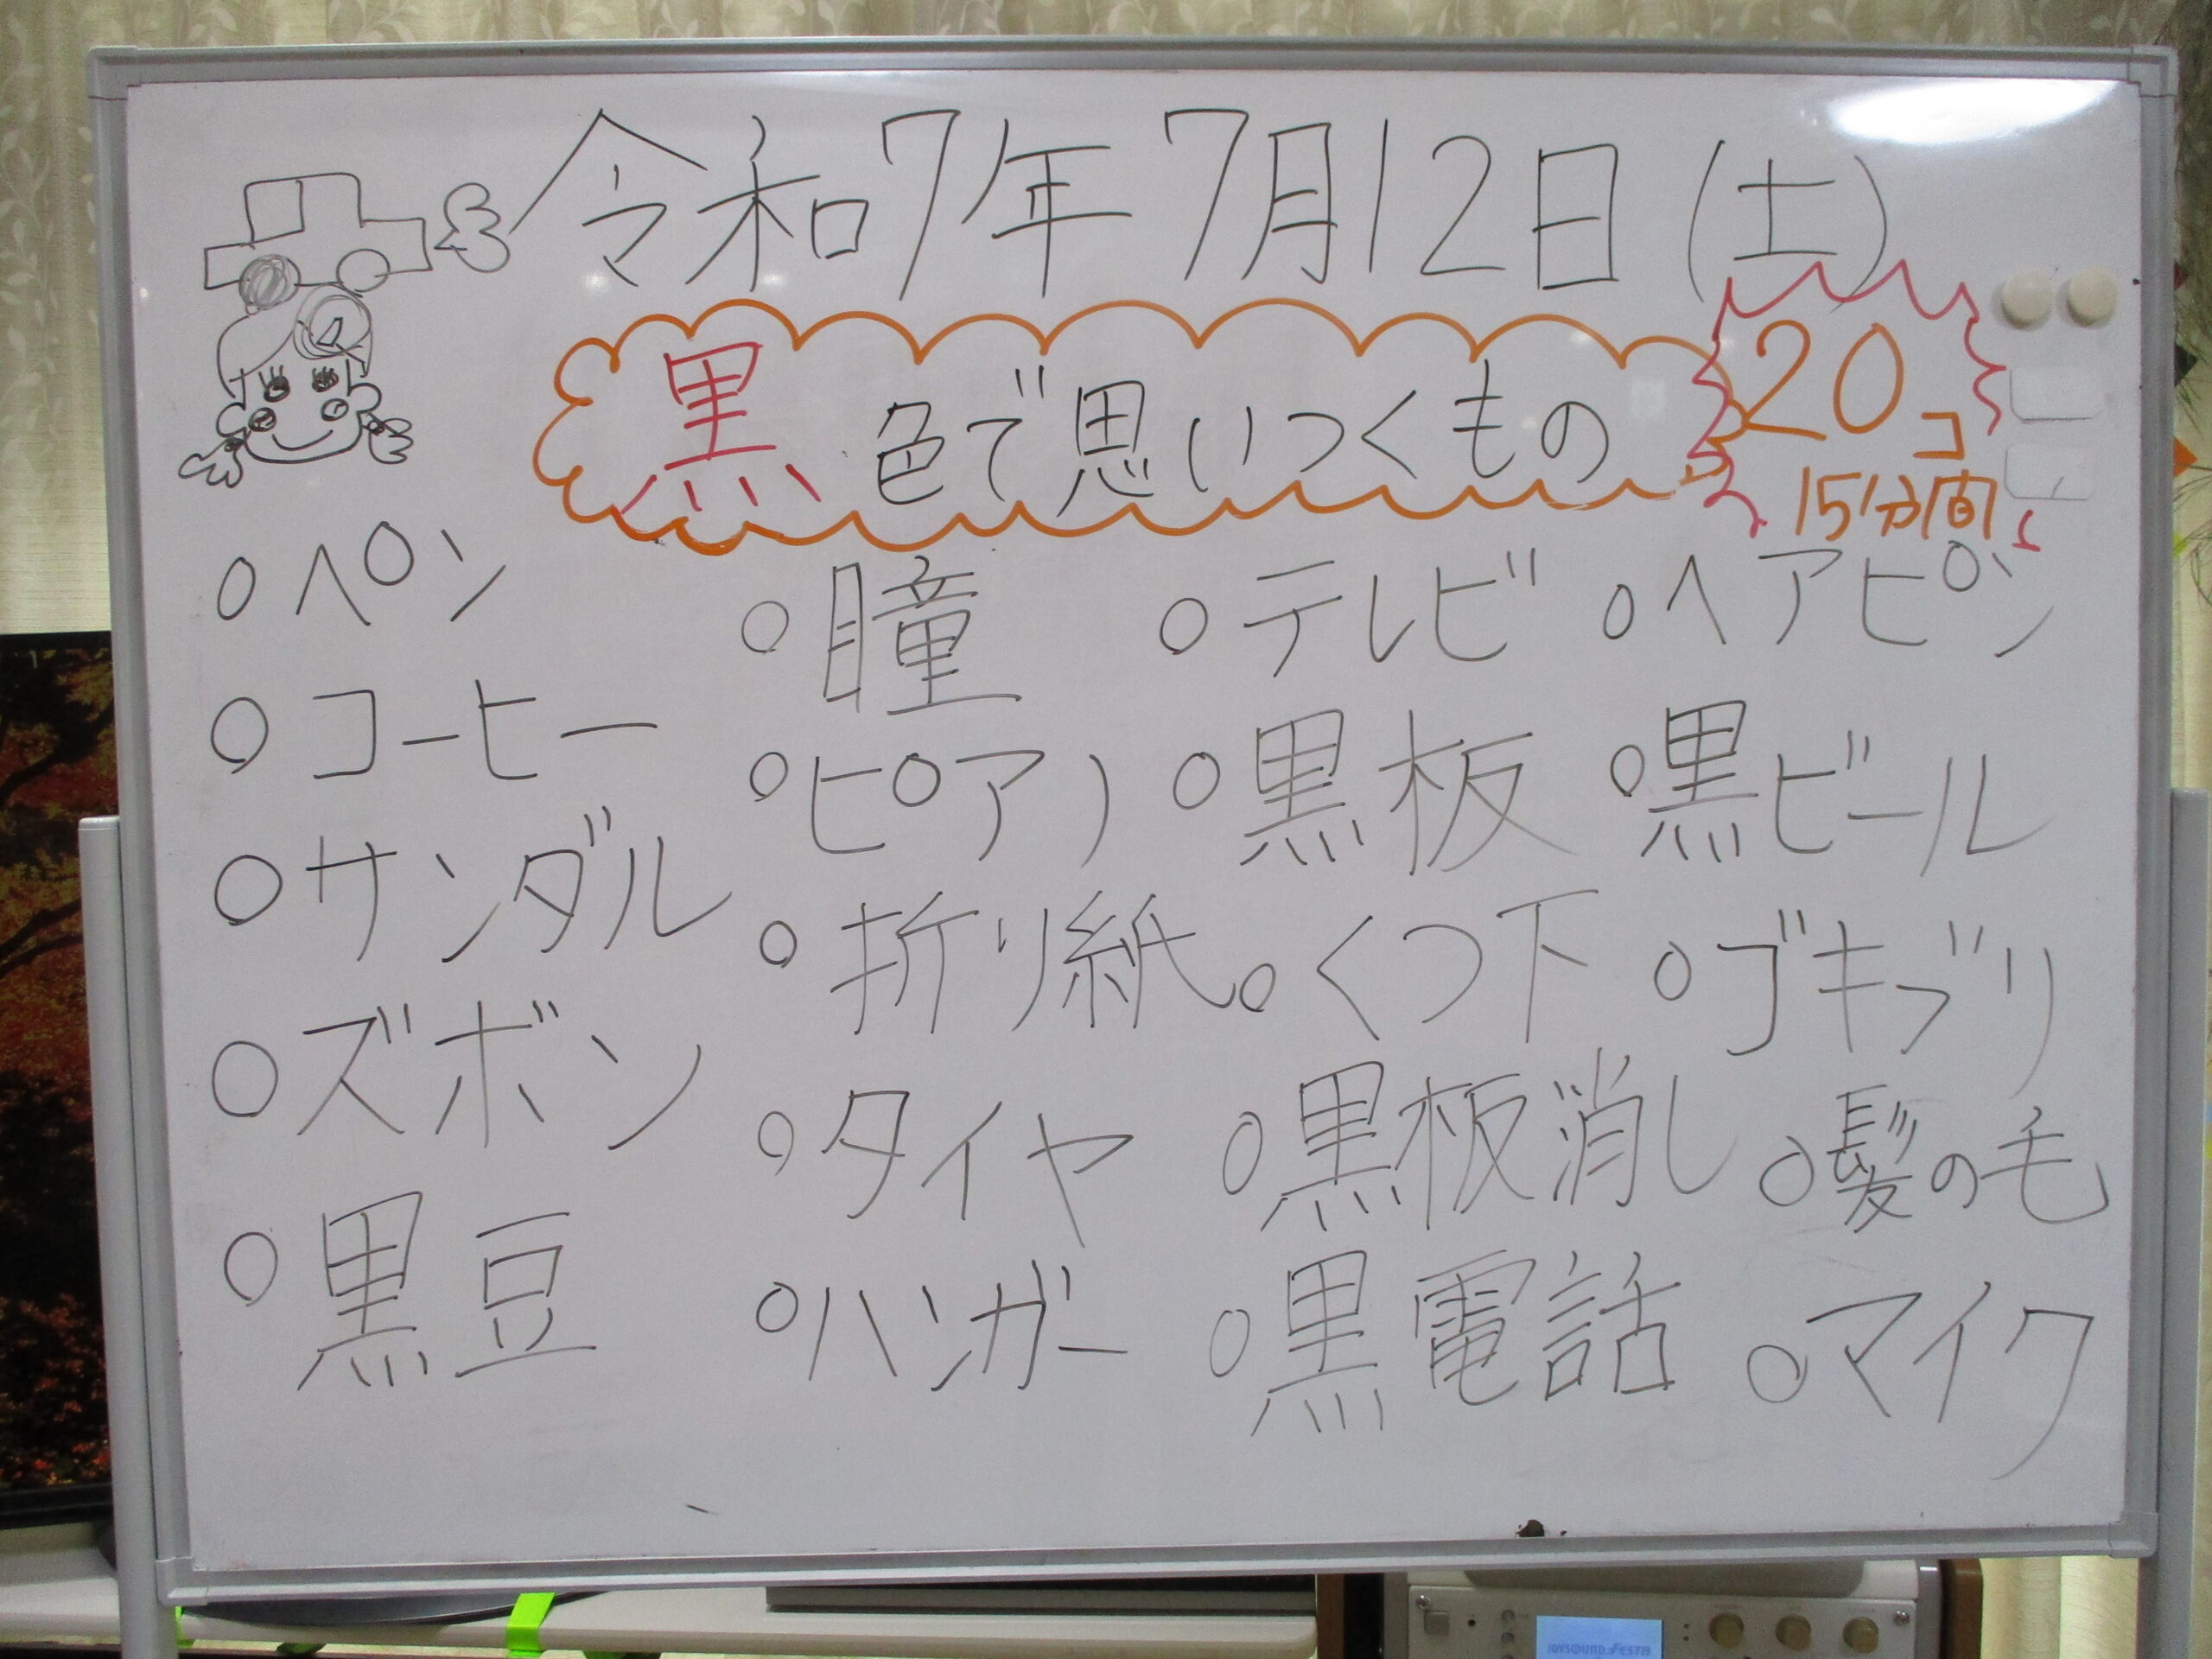 令和7年7月12日(土)
黒色で思いつくもの
20コ
15分間
○ペン
○コーヒー
○サンダル
○ズボン
○黒豆
○瞳
○ピアノ
○折り紙
○タイヤ
○ハンガー
○テレビ
○黒板
○くつ下
○黒板消し
○黒電話
○ヘアピン
○黒ビール
○ゴキブリ
○髪の毛
○マイク
JOYSOUND FESTA